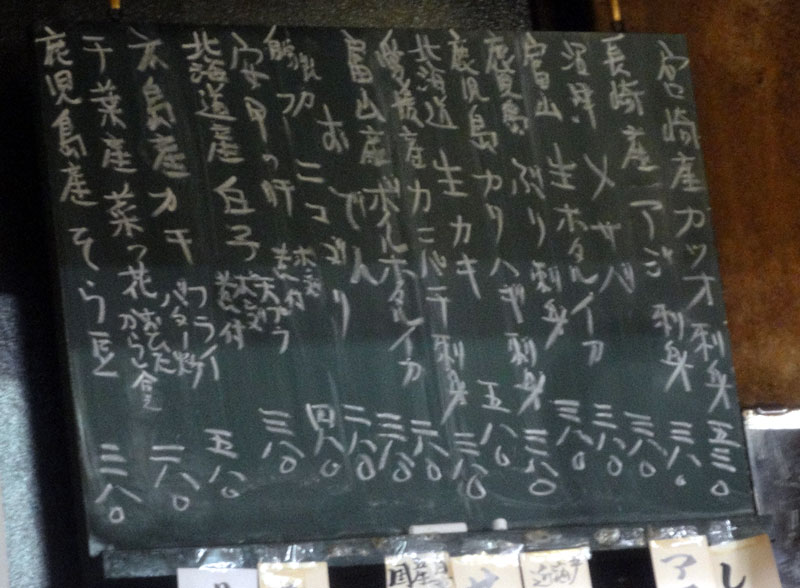 宮崎産カツオ刺身 五三〇
長崎産アジ刺身 三八〇
〆サバ 三八〇
沼津 生ホタルイカ 三八〇
富山 ぶり刺身 三八〇
鹿児島 カワハギ刺身 三八〇
北海道 生カキ 五八〇
愛媛産カンパチ刺身 三八〇
富山産 ボイルホタルイカ 二八〇
おでん 三八〇
フカ ニコゴリ 二八〇
安甲の肝 ポン酢 煮付 四八〇
北海道産 白子 天プラ ポン酢 煮付 三八〇
広島産カキ フライ バター炒 五八〇
千葉産 菜の花 おひたし からし合え 二八〇
鹿児島産 そら豆 三八〇
国産
近海